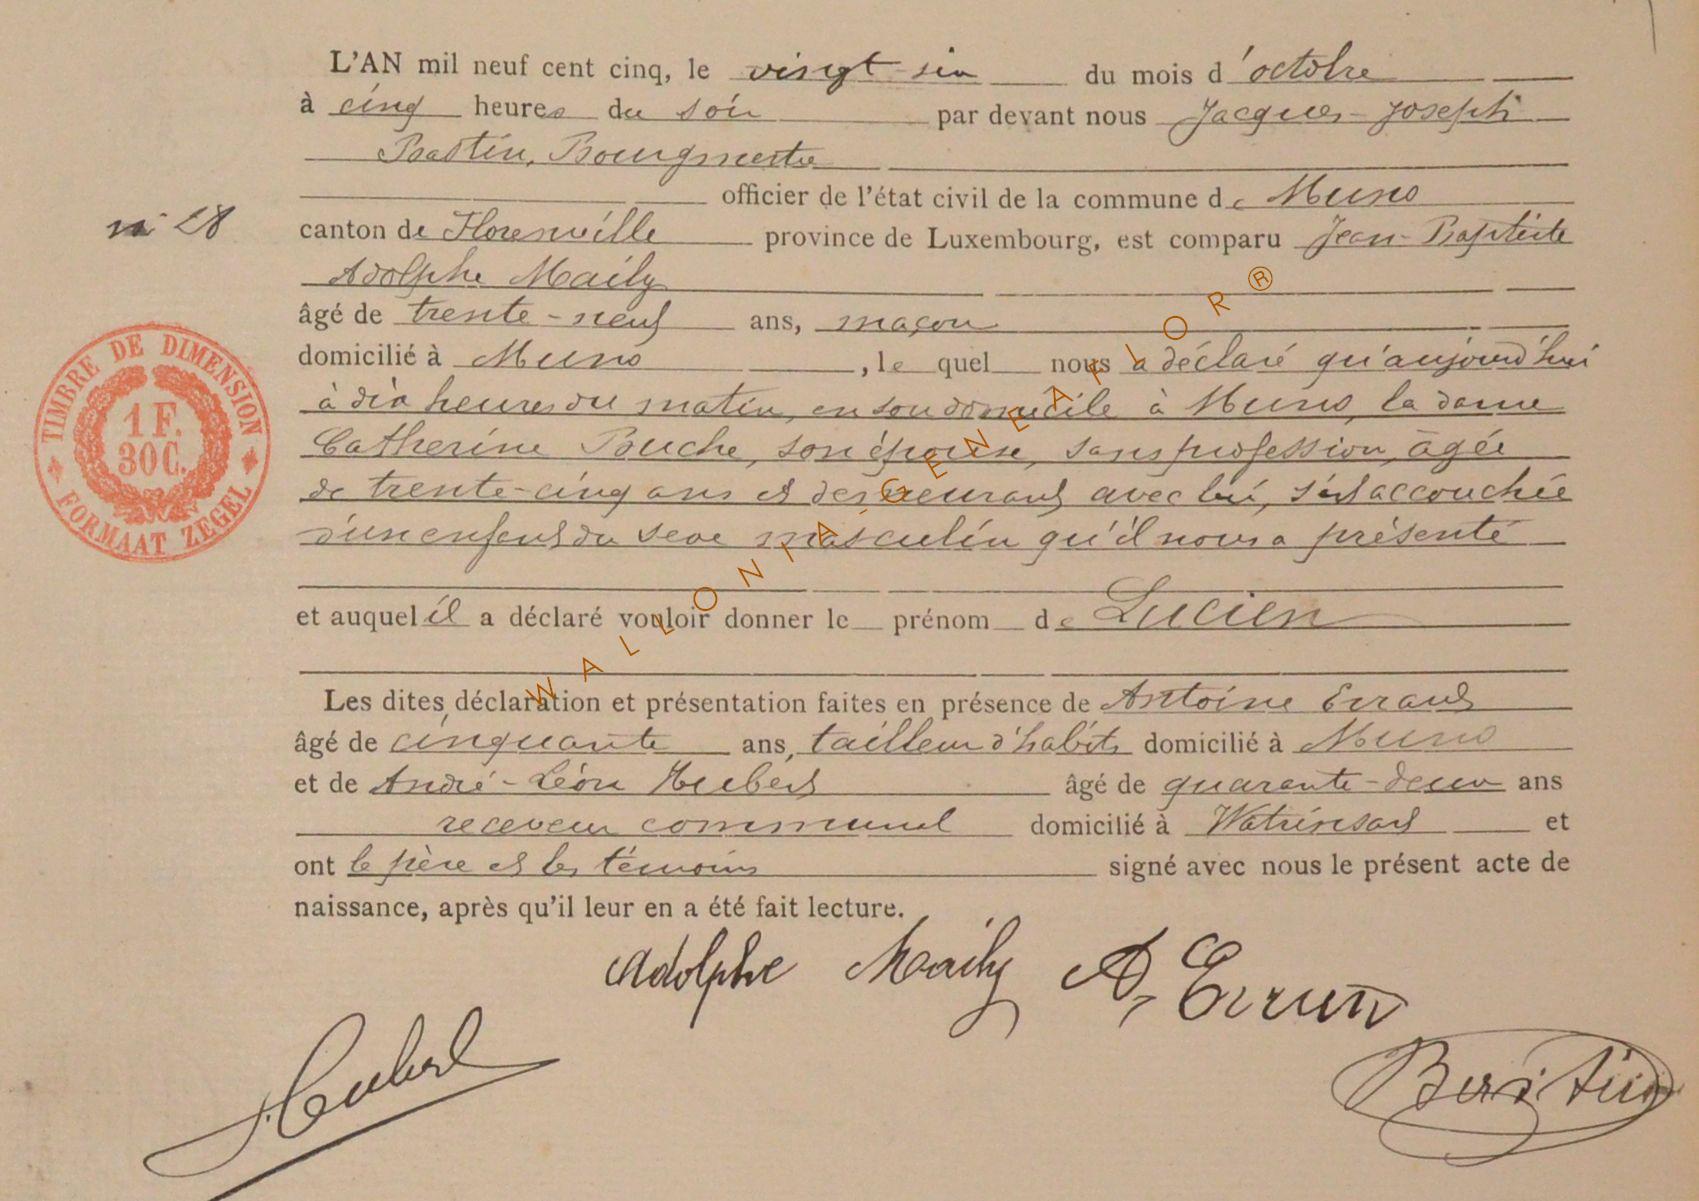 L'AN mil neuf cent cinq, le vingt-six du mois d'octobre
à cinq heures du soir par devant nous Jacques-Joseph
Bastin, Bourgmestre
officier de l'état civil de la commune de Muno
n° 28
canton de Florenville province de Luxembourg, est comparu Jean-Baptiste
Adolphe Maily
âgé de trente-neuf ans, maçon
domicilié à Muno, le quel nous a déclaré qu'aujourd'hui
à dix heures du matin, en son domicile à Muno, la dame
Catherine Pouche, son épouse, sans profession, âgée
de trente-cinq ans et demeurant avec lui, s'est accouchée
d'un enfant du sexe masculin qu'il nous a présenté
et auquel il a déclaré vouloir donner le prénom de Lucien
Les dites déclaration et présentation faites en présence de Antoine
âgé de cinquante ans, tailleur d'habits domicilié à Muno
et de André-Léon Hubert âgé de quarante-deux ans
receveur communal domicilié à Watrinsart et
ont le père et les témoins signé avec nous le présent acte de
naissance, après qu'il leur en a été fait lecture.
Adolphe Maily A.
Hubert
Bastin
TIMBRE DE DIMENSION
1 F.
30 C.
FORMAAT ZEGEL
WALLONIA-GENEAFLOR®